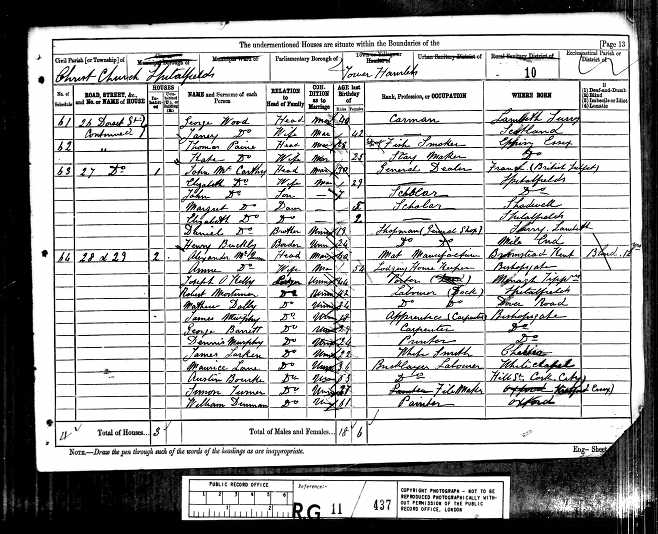 The undermentioned Houses are situate within the Boundaries of the
Page 13
Civil Parish [or Township] of
Municipal Borough of
Municipal Ward of
Parliamentary Borough of
Town or Village or Hamlet of
Urban Sanitary District of
Rural Sanitary District of
Ecclesiastical Parish or District of
Christ Church Spitalfields
Tower Hamlets
10
No. of Schedule
ROAD, STREET, &c., and No. or NAME of HOUSE
HOUSES
NAME and Surname of each Person
RELATION to Head of Family
CONDITION as to Marriage
AGE last Birthday of
Males
Females
Rank, Profession, or OCCUPATION
WHERE BORN
If
(1) Deaf-and-Dumb
(2) Blind
(3) Imbecile or Idiot
(4) Lunatic
61 26 Dorset St George Wood Head Mar 40 Carman Lambeth Surry
Continued Do Wife Mar 42 Scotland
62 " Thomas Paine Head Mar 28 Fish Smoker Epping Essex
Kate Do Wife Mar 25 Stay Maker Do
63 27 Do 1 John Mc Carthy Head Mar 30 General Dealer France (British Subject)
Elizabeth Do Wife Mar 29 Spitalfields
John Do Son 7 Scholar Do
Margret Do Daur 5 Scholar Shadwell
Elizabeth Do Do 2 Spitalfields
Daniel Do Brother Unm 19 Shopman (General Shop) Surry, Lambeth
Henry Buckley Border Unm 24 Do Do Mile End
64 28 & 29 2 Alexander Head Mar Mat Manufacture Kent Blind
Annie Do Wife Mar 54 Lodging House Keeper Bishopgate
Joseph O Kelly Lodger Unm 44 Porter
Robert Mortimer Do Unm 42 Labour (Dock) Spitalfields
Mathew Do Unm 34 Do Do Road
James Murphy Do Unm 18 Apprentice (Carpenter) Bishopsgate
George Barrett Do Unm 29 Carpenter Do
Dennis Murphy Do Unm 24 Printer Do
James Larken Do Unm 22 White Smith
Maurice Lane Do Unm 36 Bricklayer Labourer Whitechapel
Austin Bourke Do Unm 53 Do Cork
Simon Turner Do Unm 27 File Maker Oxford Essex
William Denman Do 61 Painter Oxford
Total of Houses... 3
Total of Males and Females... 18 6
NOTE.—Draw the pen through such of the words of the headings as are inappropriate.
Eng— Sheet
PUBLIC RECORD OFFICE
1 2 3 4 5 6
1 2
Reference:-
RG 11 / 437
COPYRIGHT PHOTOGRAPH - NOT TO BE REPRODUCED PHOTOGRAPHICALLY WITHOUT PERMISSION OF THE PUBLIC RECORD OFFICE, LONDON